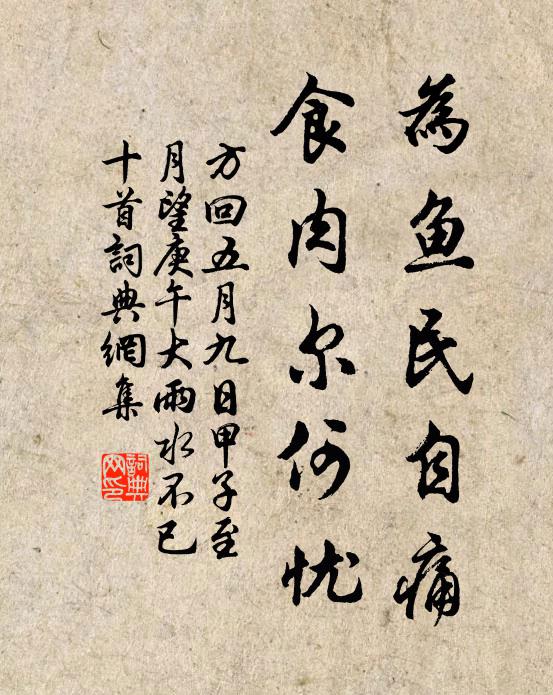 為鱼民自痛
食肉尔何忧
方回五月九日甲子至
月望庚午大雨水不已
十首詞典網集
詞典
网印